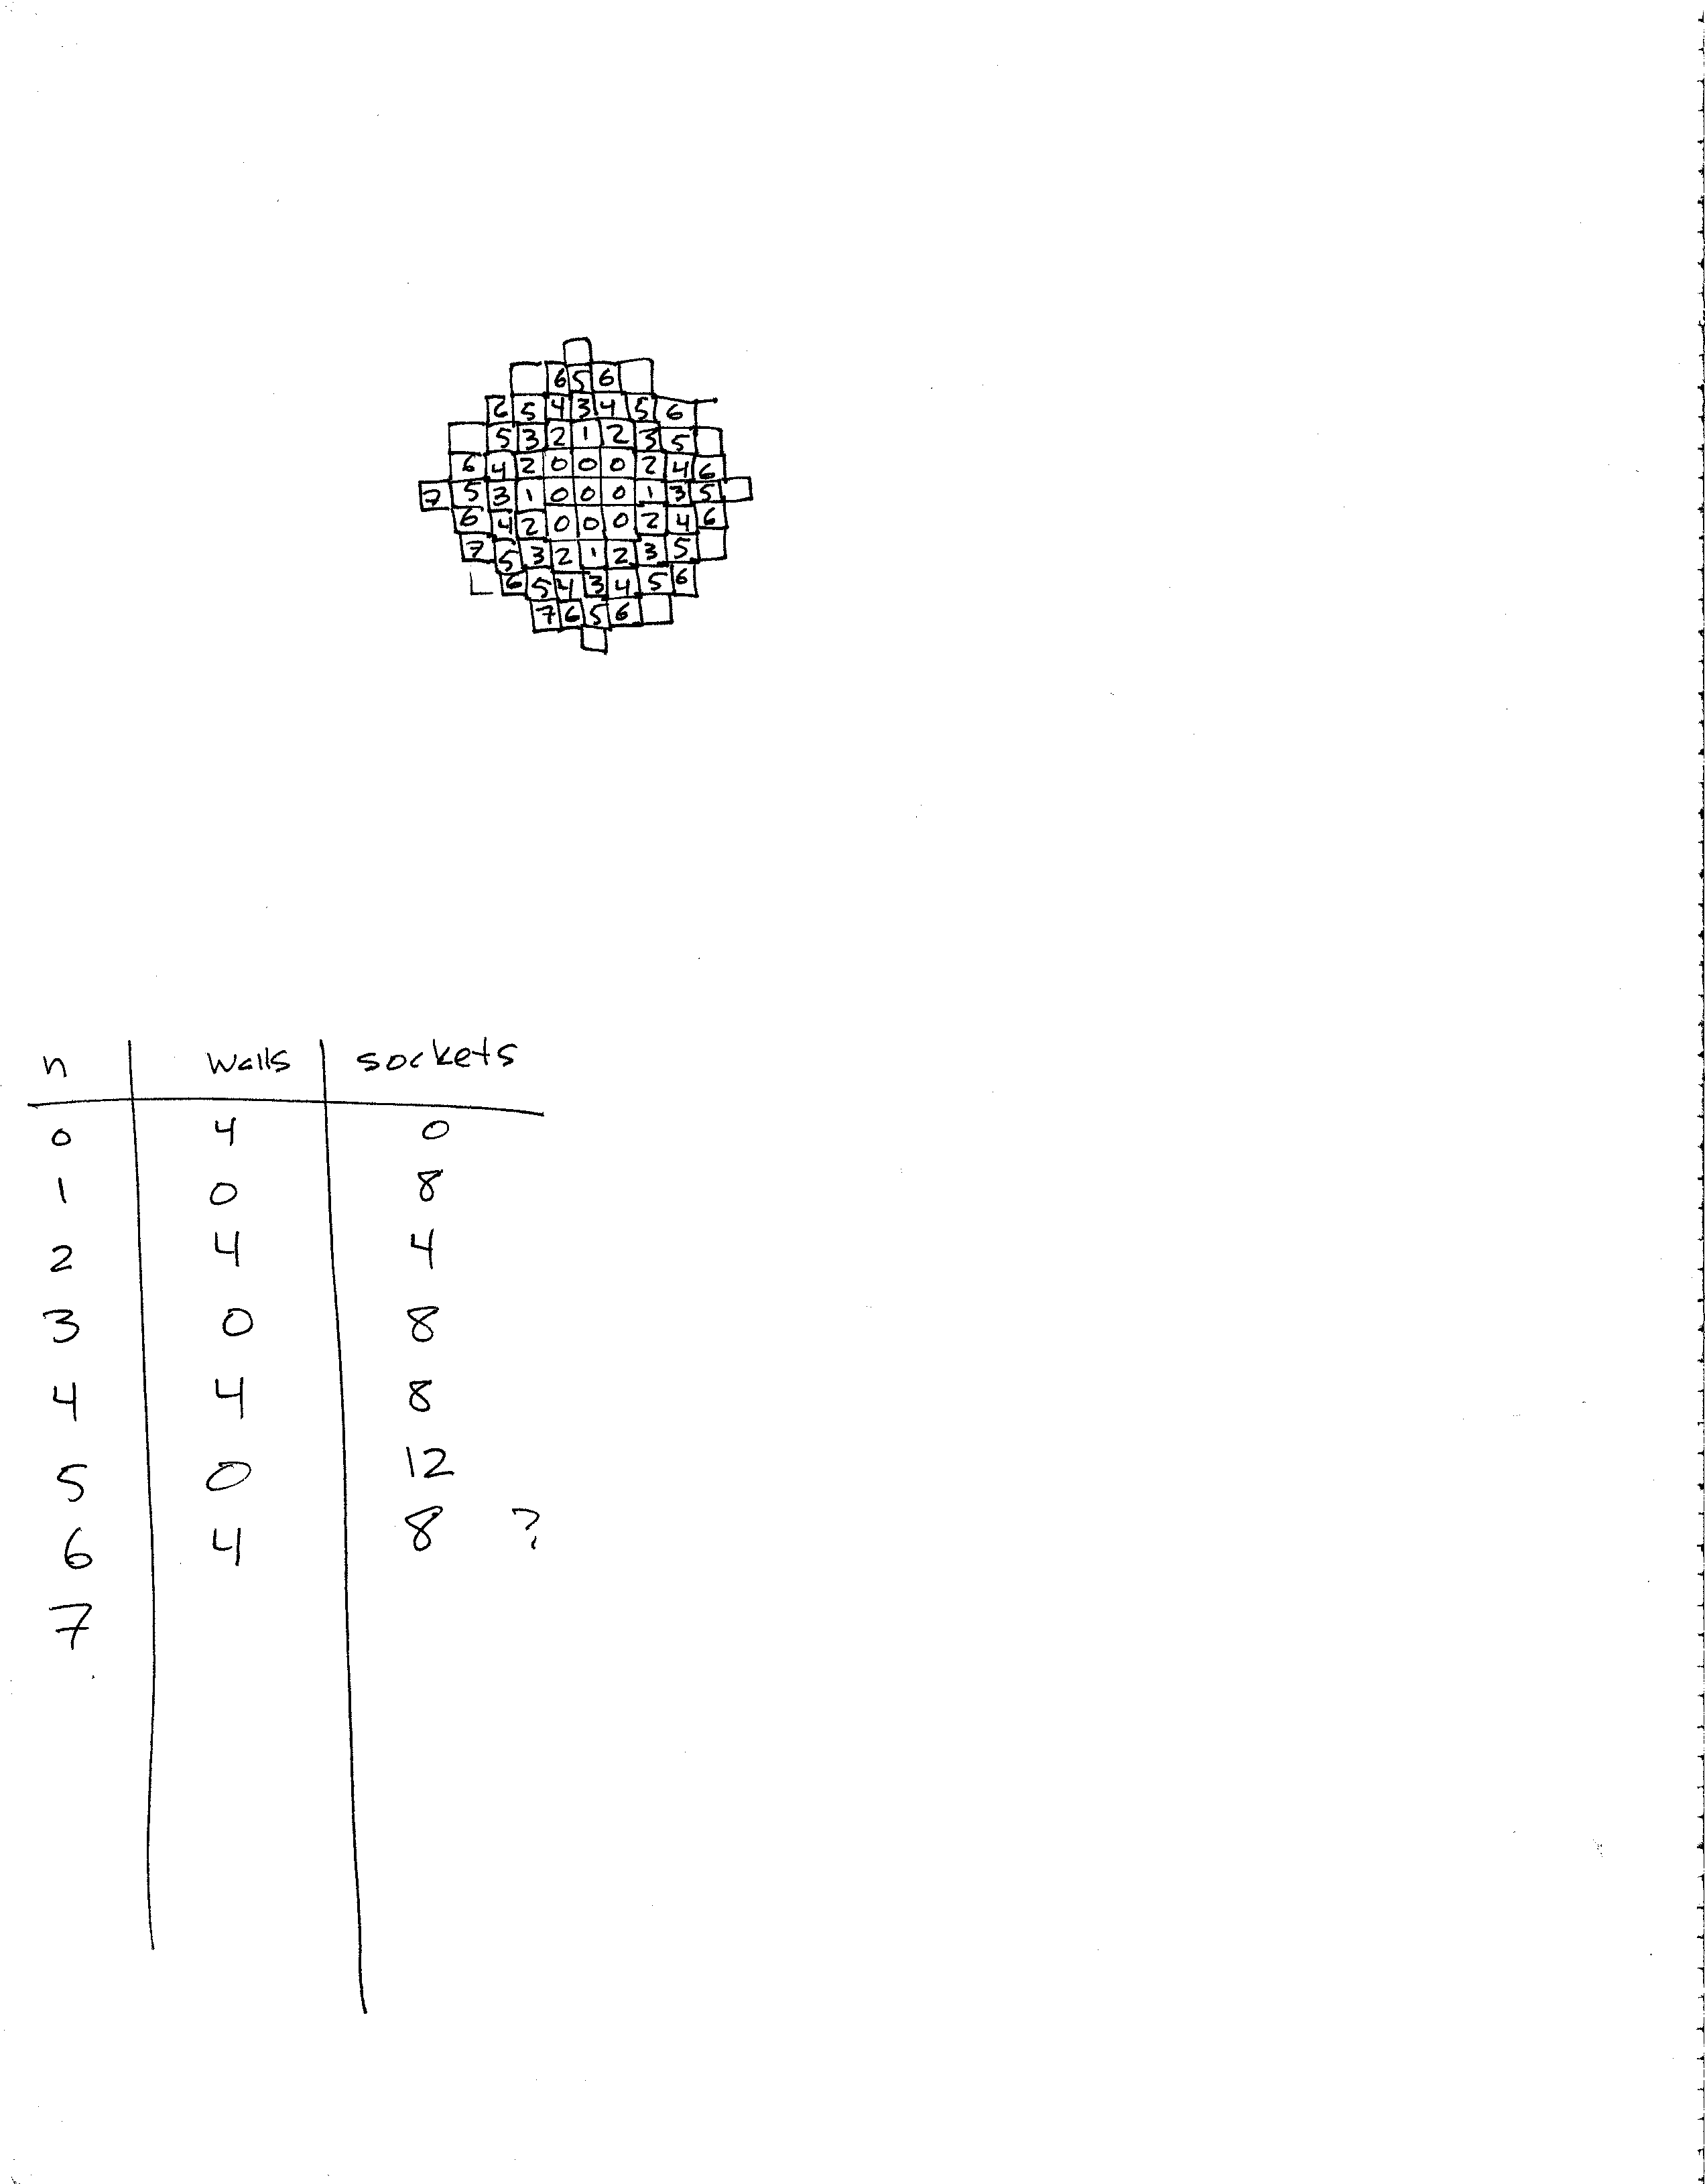 6 5 6
6 5 4 3 4 5 6
5 3 2 1 2 3 5
6 4 2 0 0 0 2 4 6
7 5 3 1 0 0 0 1 3 5
6 4 2 0 0 0 2 4 6
7 5 3 2 1 2 3 5
6 5 4 3 4 5 6
7 6 5 6
n walls sockets
0 4 0
1 0 8
2 4 4
3 0 8
4 4 8
5 0 12
6 4 8 ?
7